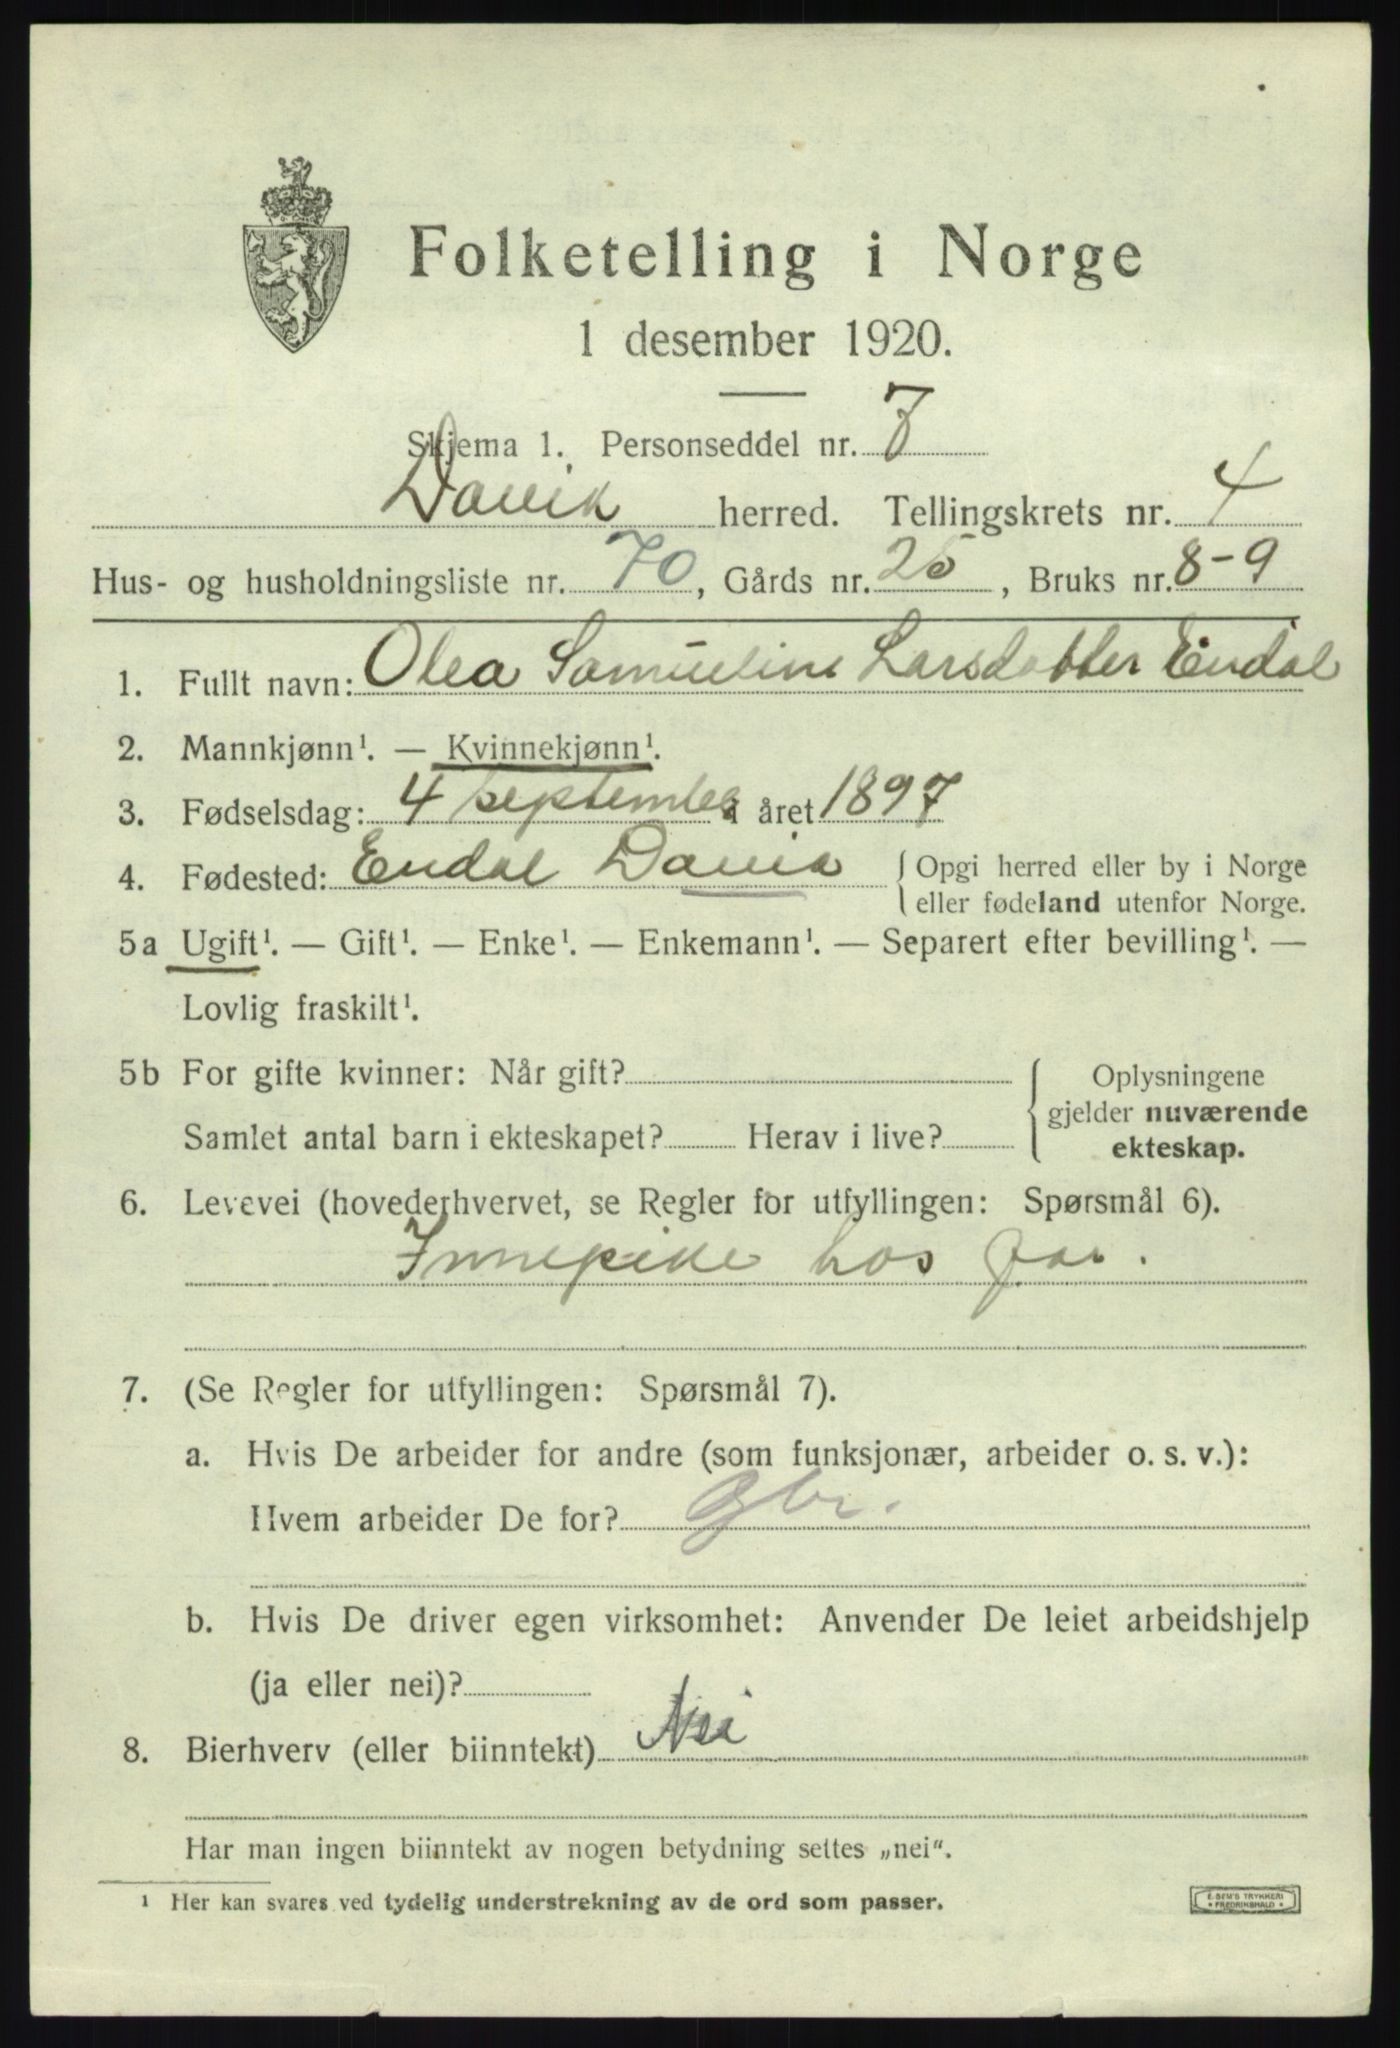 Folketelling i Norge
1 desember 1920.
Skjema 1. Personseddel nr. 7
Davik herred. Tellingskrets nr. 4
Hus- og husholdningsliste nr. 70, Gårds nr. 25, Bruks nr. 8-9
1. Fullt navn: Olea Samueline Larsdatter Endal
2. Mannkjønn¹. — Kvinnekjønn¹.
3. Fødselsdag: 4 september i året 1897
4. Fødested: Endal Davik { Opgi herred eller by i Norge
eller fødeland utenfor Norge.
5a Ugift¹. — Gift¹. — Enke¹. — Enkemann¹. — Separert efter bevilling¹. —
Lovlig fraskilt¹.
5b For gifte kvinner: Når gift? { Oplysningene
gjelder nuværende
Samlet antal barn i ekteskapet? Herav i live? ekteskap.
6. Levevei (hovederhvervet, se Regler for utfyllingen: Spørsmål 6).
Innepike hos far.
7. (Se Regler for utfyllingen: Spørsmål 7).
a. Hvis De arbeider for andre (som funksjonær, arbeider o. s. v.):
Hvem arbeider De for? Gbr.
b. Hvis De driver egen virksomhet: Anvender De leiet arbeidshjelp
(ja eller nei)?
8. Bierhverv (eller biinntekt) Nei
Har man ingen biinntekt av nogen betydning settes „nei“.
¹ Her kan svares ved tydelig understrekning av de ord som passer.
E. SEM'S TRYKKERI
FREDRIKSHALD